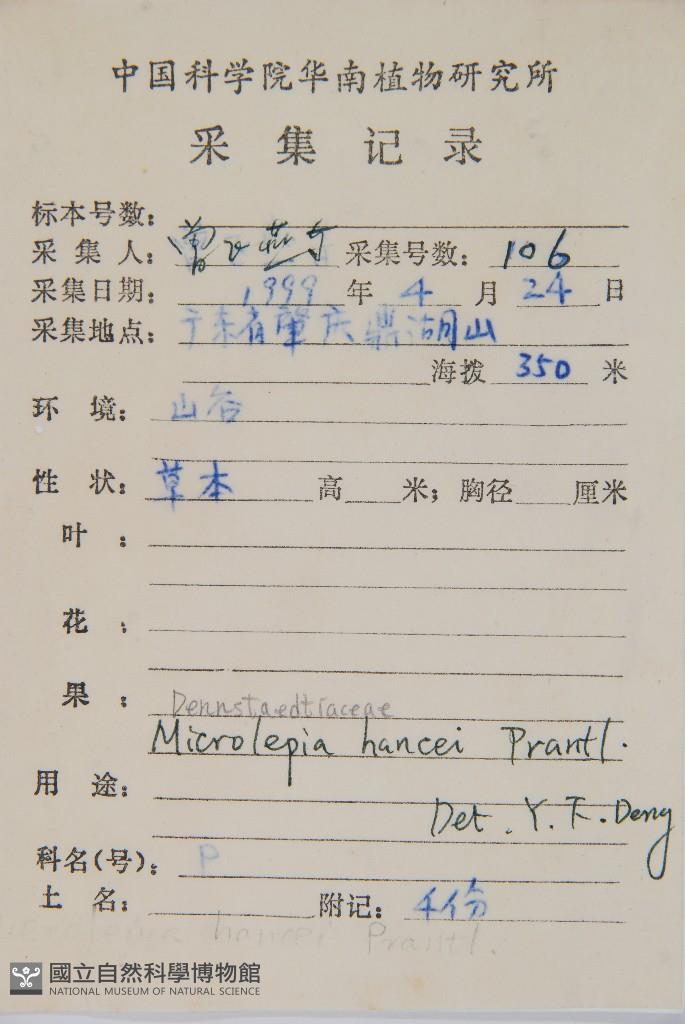 中国科学院华南植物研究所
采集记录
标本号数：
采集人：曾飞燕 采集号数：106
采集日期：1999年4月24日
采集地点：广东省肇庆鼎湖山
海拨350米
环境：山谷
性状：草本 高 米；胸径 厘米
叶：
花：
果：
Dennstaedtiaceae
Microlepia hancei Prantl.
用途：
Det. Y. F. Deng
科名(号)：P
土名： 附记：4份
hancei Prantl.
國立自然科學博物館
NATIONAL MUSEUM OF NATURAL SCIENCE